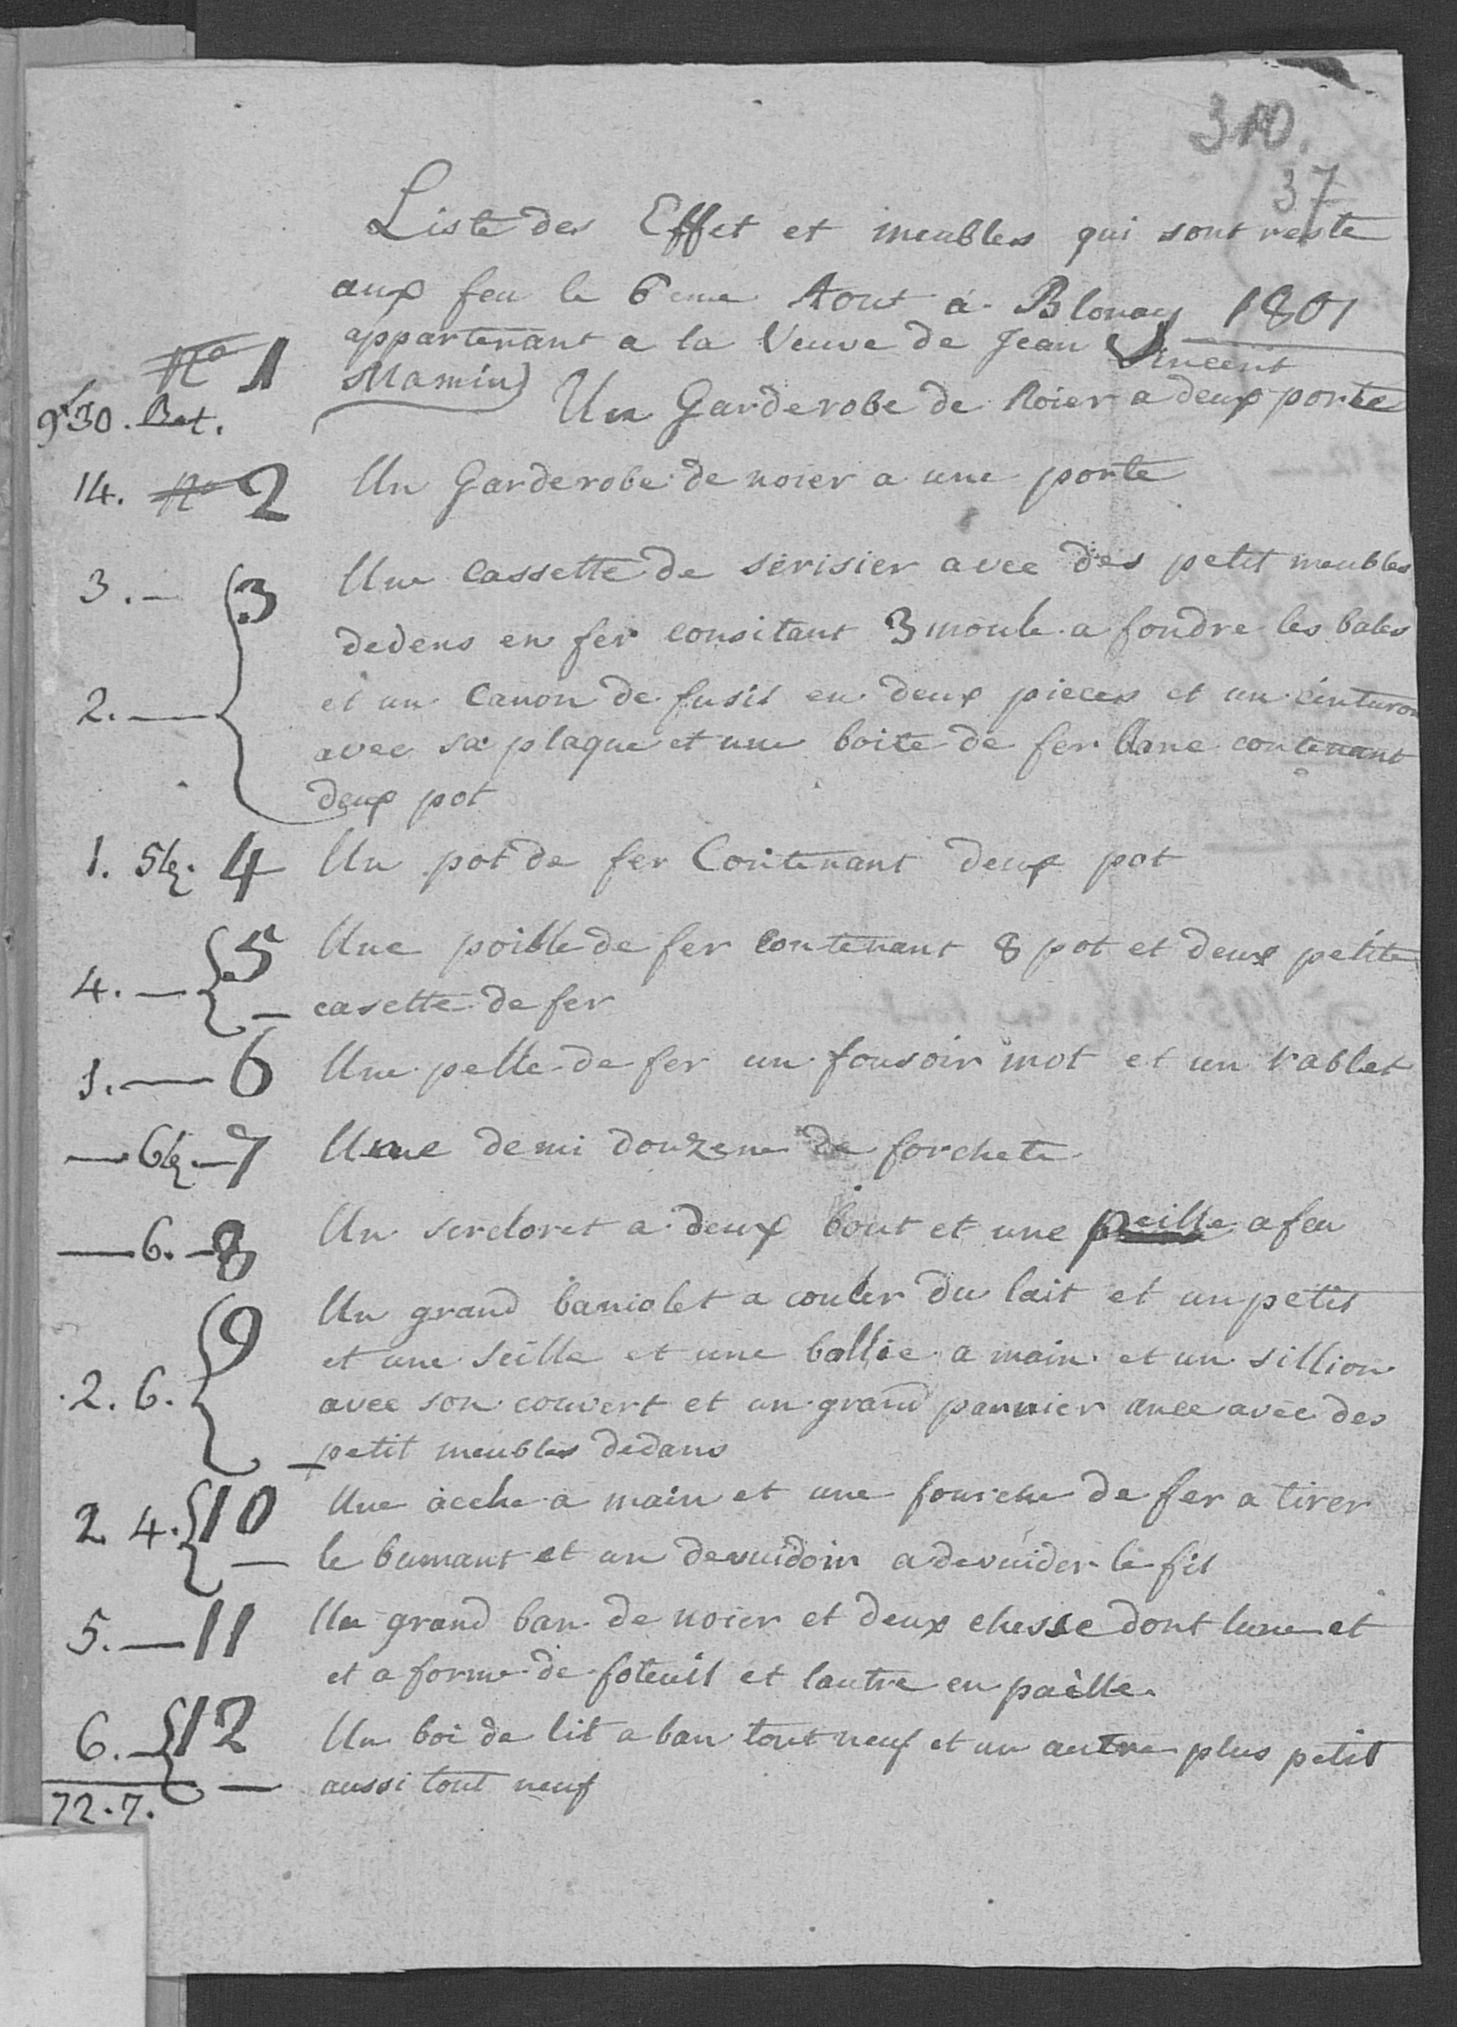 310.
37
Liste des Effet et meubles qui sont reste
aux feu le 6eme Aout a Blonay 1801
appartenant a la Veuve de Jean Vincent
Mamin
N° 1 Un Garderobe de Noier a deux porte
30. Bat.
14. N° 2 Un Garderobe de noier a une porte
3. — 3 Une Cassette de serisier avec des petit meubles
dedens en fer consitant 3 moule a foudre les bales
2. — et un Canon de fusil en deux pieces et un cinturon
avec sa plaque et une boite de fer blanc contenant
deux pot
1. 5 bz. 4 Un pot de fer Contenant deux pot
Une poille de fer contenant 8 pot et deux petite
4. — 5 casette de fer
1. — 6 Une pelle de fer un fousoir mot et un rablet
— 6 bz — 7 Une demi douzene de forchete
— 6. — 8 Un sercloret a deux bout et une peille a feu
9 Un grand baniolet a couler du lait et un petit
et une seille et une a main et un sillion
2. 6. avec son couvert et un grand pannier avec des
petit meubles dedans
2 4. 10 Une acche a main et une fourche de fer a tirer
le bumant et un devuidoir a devuider le fil
5. — 11 Un grand ban de noier et deux chesse dont lune et
et a forme de foteuil et lautre en paille.
6. — 12 Un boi de lit a ban tout neuf et un autre plus petit
aussi tout neuf
72. 7.